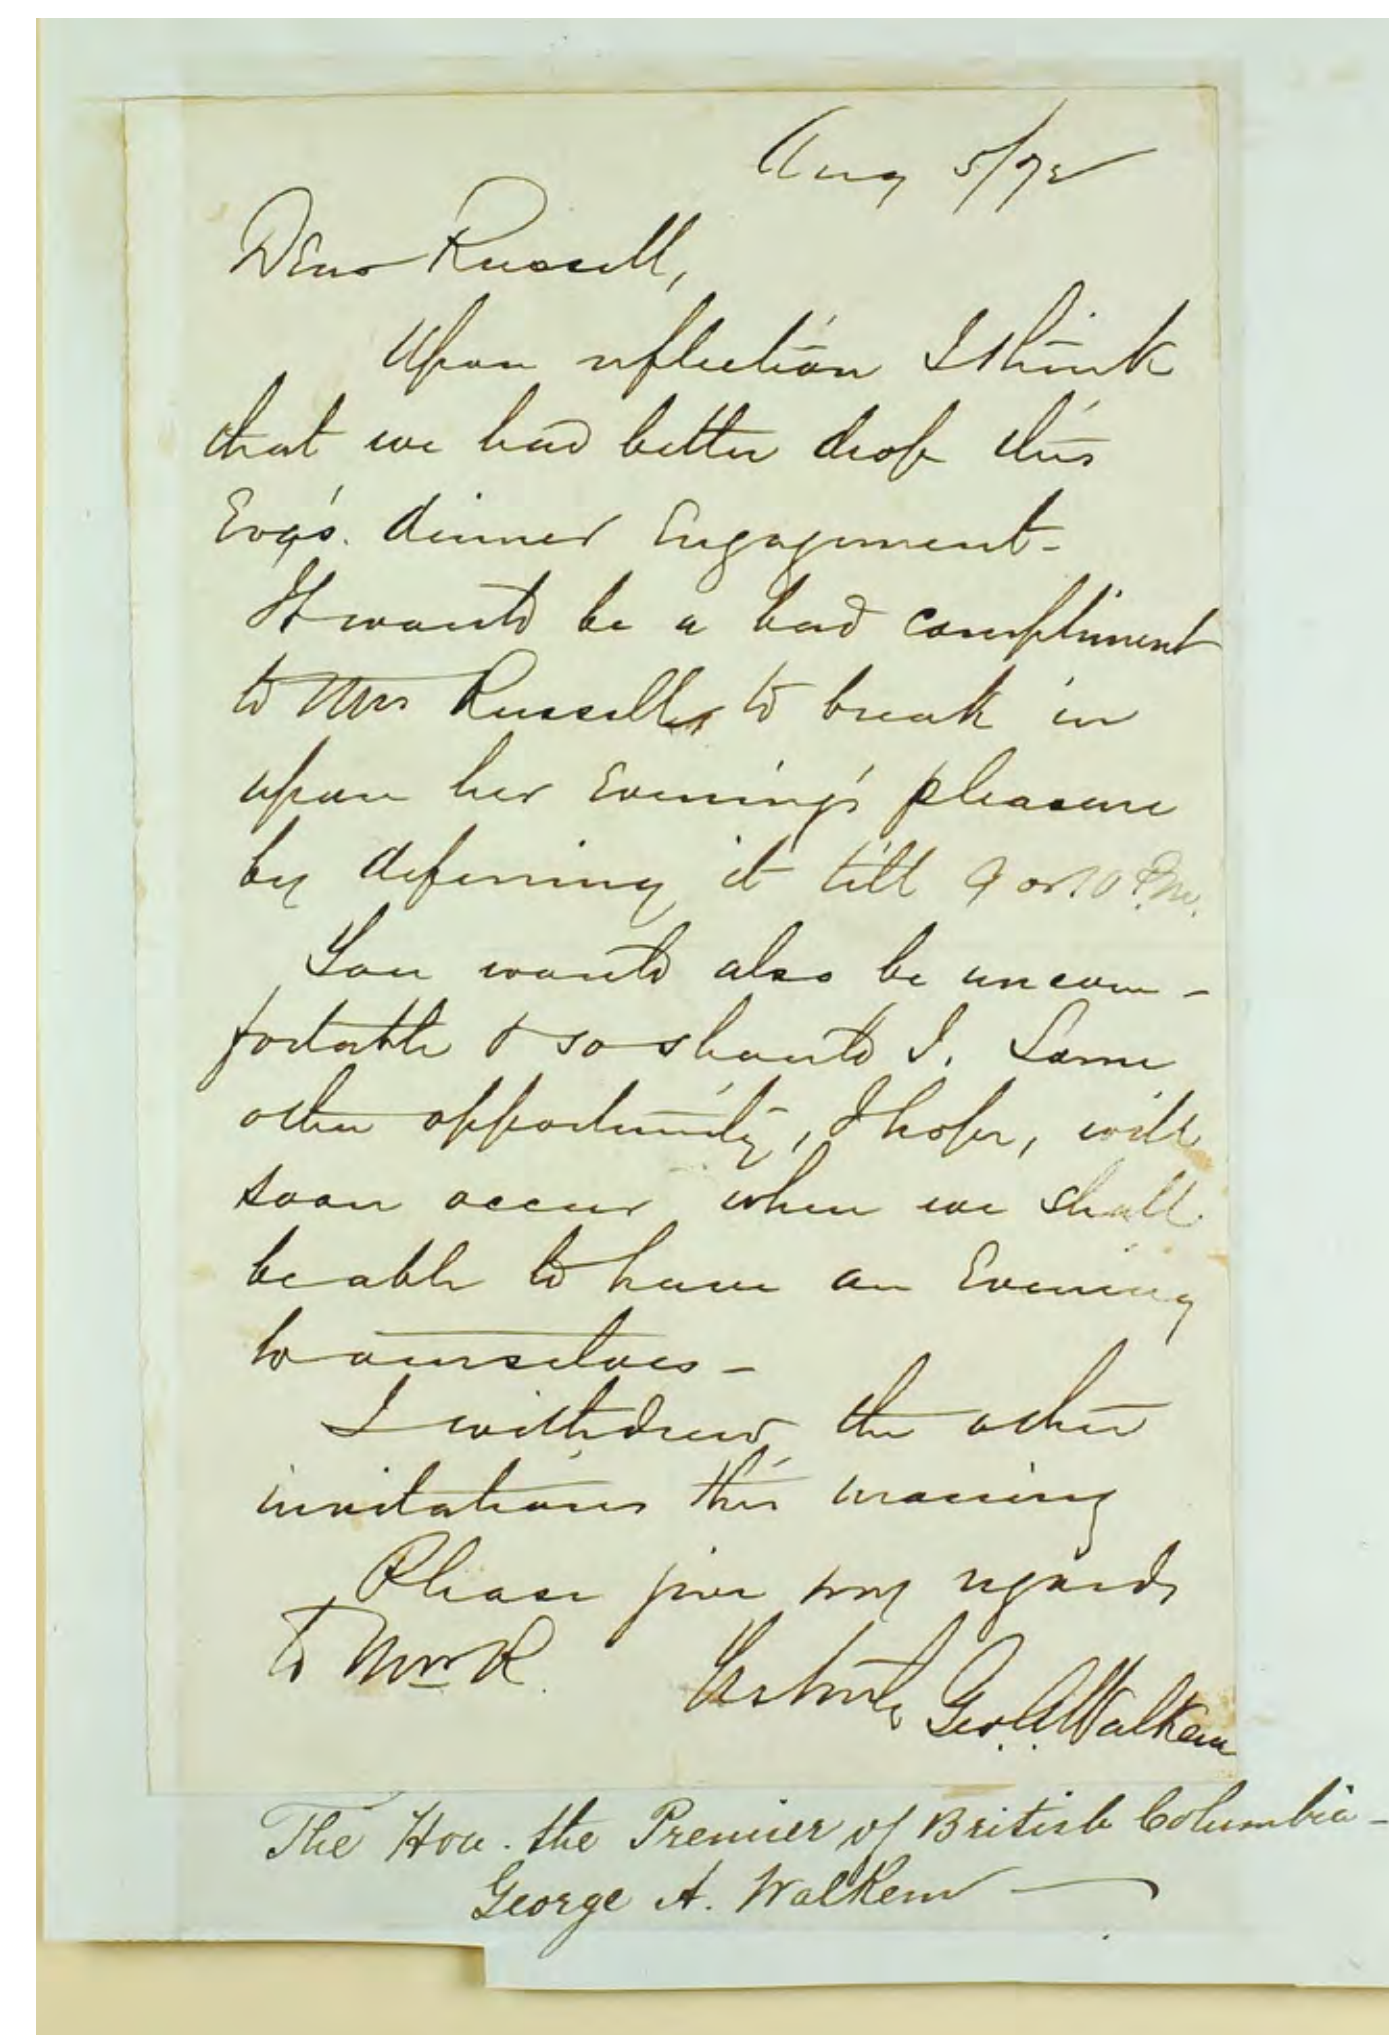 Aug 5/72
Dear Russell,
Upon reflection I think
that we had better drop this
Evg's. dinner Engagement -
It would be a bad compliment
to Mrs Russell to break in
upon her Evening's pleasure
by deferring it till 9 or 10 P.M.
You would also be uncom -
fortable & so should I. Some
other opportunity, I hope, will
soon occur when we shall
be able to have an Evening
to ourselves -
I withdrew the other
invitations this morning
Please give my regards
to Mrs R.
Yrs truly Geo. A. Walkem
The Hon. the Premier of British Columbia -
George A. Walkem